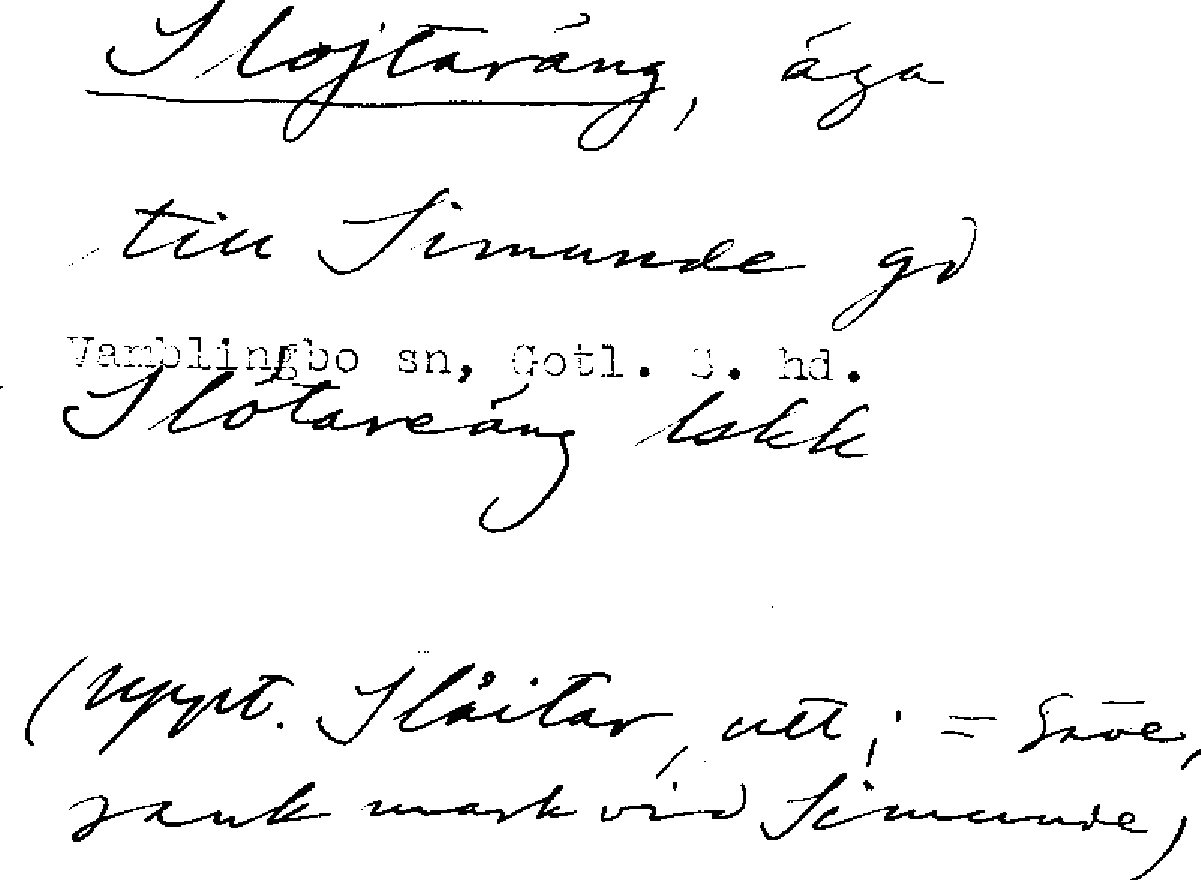 Slojtaräng, äga
till Simunde gd
Vamblingbo sn, Gotl. S. hd.
Slötareäng lskk
(uppt. Slåitar, utt; = Säve,
sank mark vid Simunde)